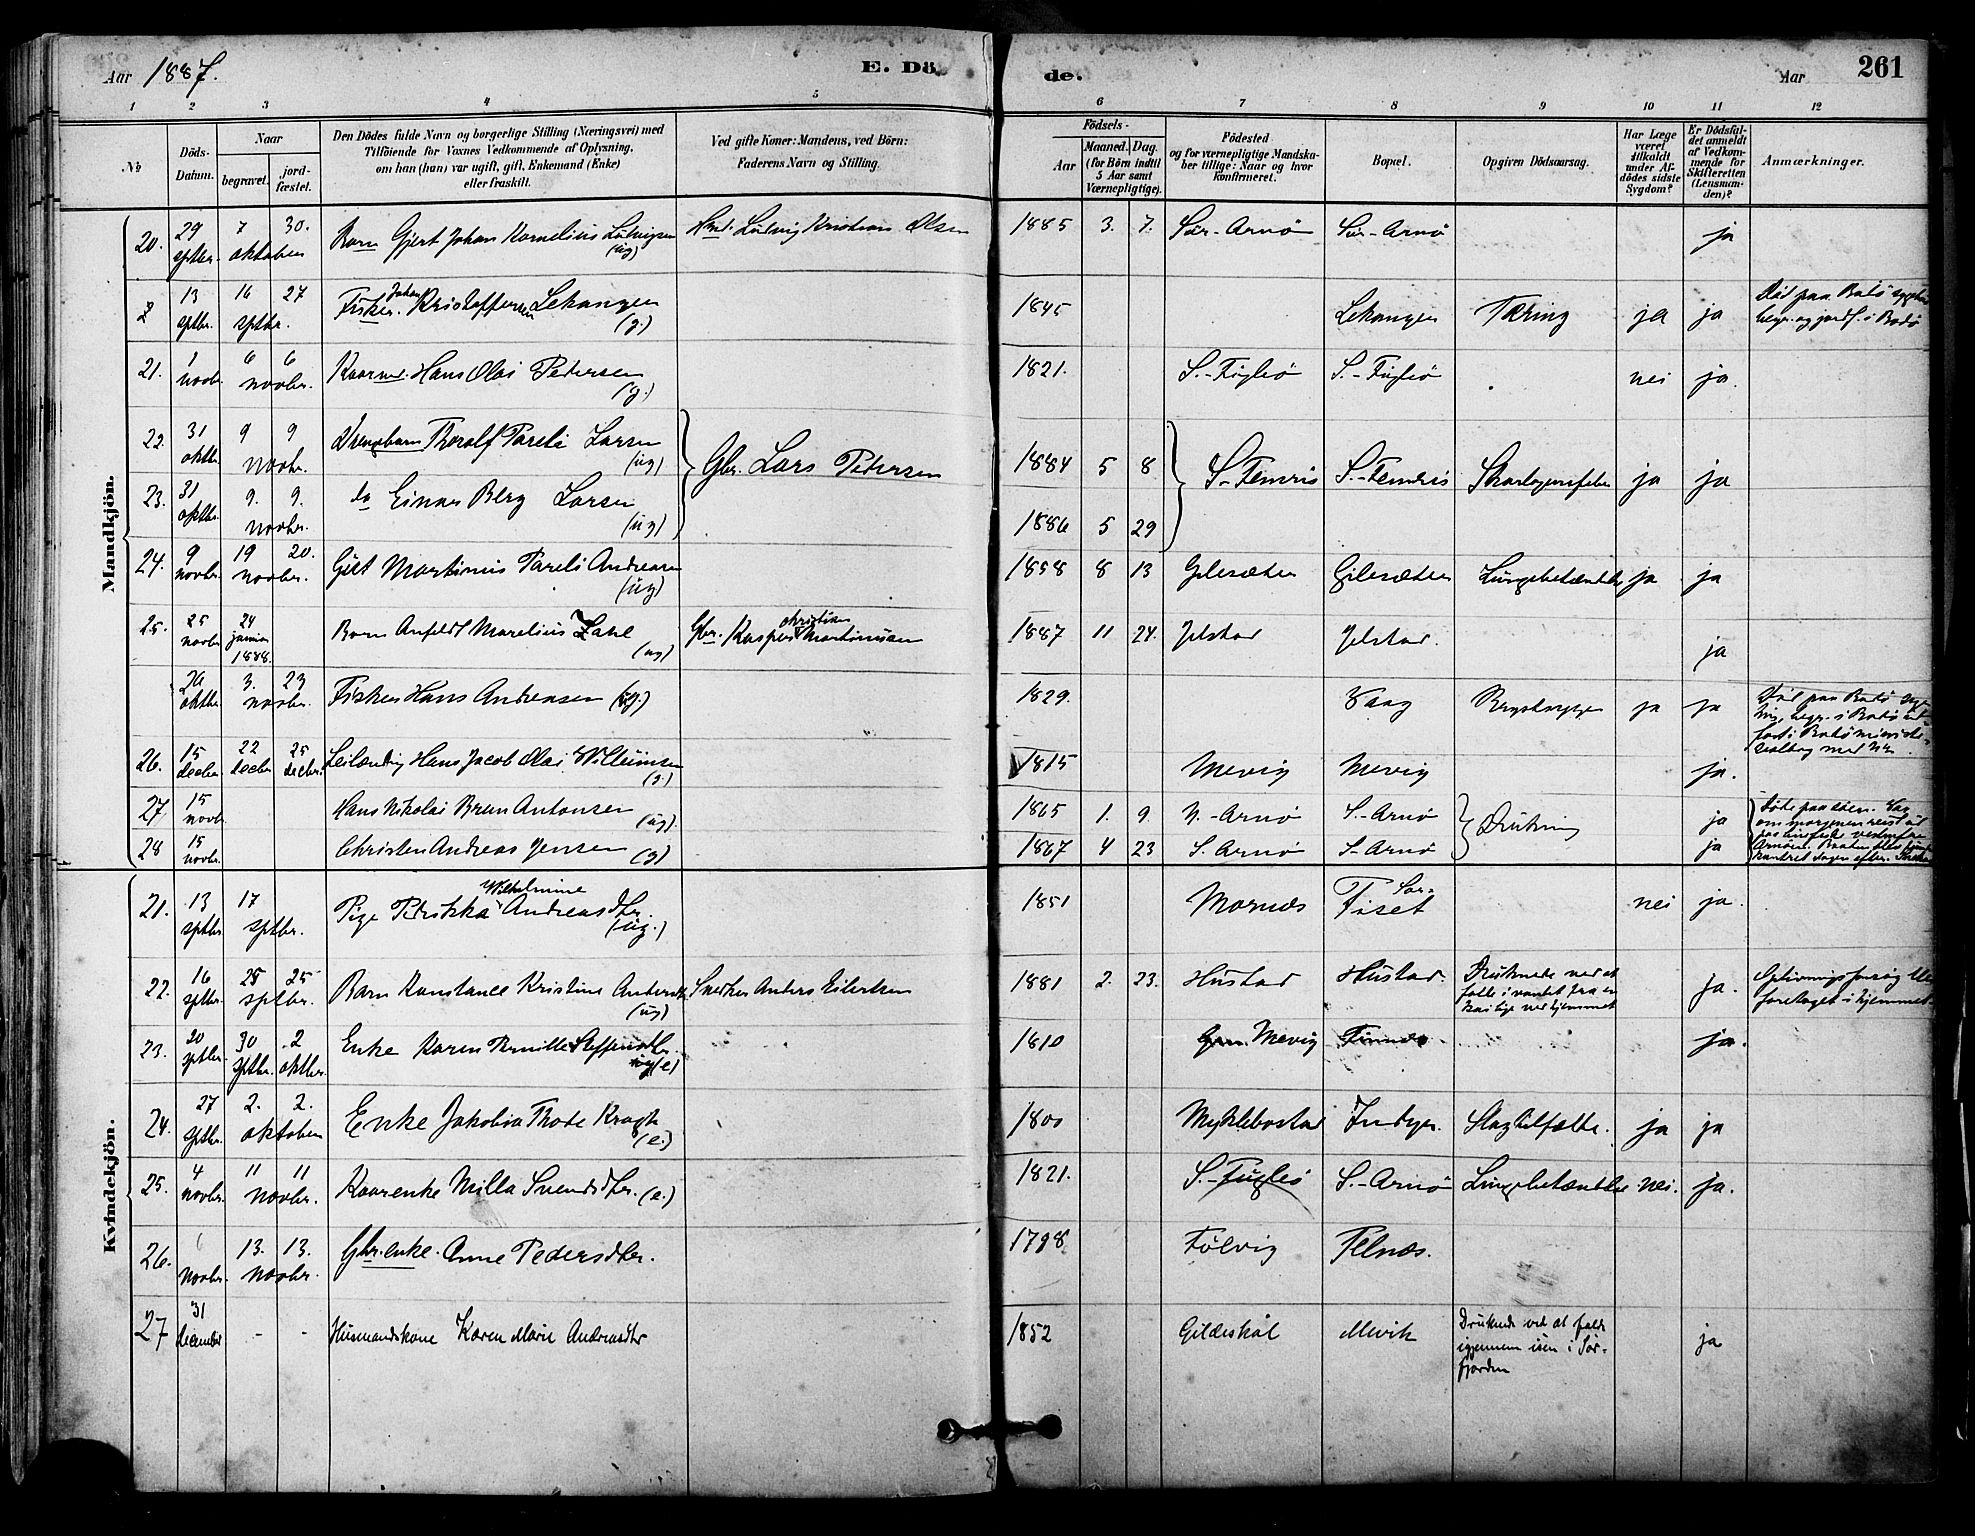 Aar 1887. E. Dö de. Aar 261
1 2 3 4 5 6 7 8 9 10 11 12
No
Döds-Datum.
Naar
begravet. jordfæstet.
Den Dödes fulde Navn og borgerlige Stilling (Næringsvei) med
Tilföiende for Voxnes Vedkommende af Oplysning,
om han (hun) var ugift, gift, Enkemand (Enke)
eller fraskilt.
Ved gifte Koner: Mandens, ved Börn:
Faderens Navn og Stilling.
Födsels-
Aar Maaned. Dag.
(for Börn indtil
5 Aar samt
Værnepligtige).
Födested
og for værnepligtige Mandskaber tillige: Naar og hvor
konfirmeret.
Bopæl.
Opgiven Dödsaarsag.
Har Læge
været
tilkaldt
under Afdödes sidste
Sygdom?
Er Dödsfaldet anmeldt
af Vedkommende for
Skifteretten
(Lensmanden)?
Anmærkninger.
Mandkjön.
20. 29 sptbr. 7 30. oktober Barn Gjert Johan Kornelius Ludvigsen (ug) Ludvig Kristian Olsen 1885 3. 7. Sör-Arnö Sör-Arnö ja
13 sptbr. 16 27 sptbr. Fisker. Johan Kristoffersen Lekangen (g.) 1845 Lekangen Tæring ja ja Död paa Bodö
begr. og jordf. i Bodö
21. 1 novbr. 6 6 novbr. Kaarmd. Hans Olai Petersen (g.) 1821. S.-Fugleö S.-Fugleö nei ja.
22. 31 oktbr. 9 9 novbr. Thoralf Pareli Larsen (ug) Gbr. Lars Petersen 1884 5 8 S-Femris S.-Femris Skarlagensfeber ja ja
23. 31 oktbr. 9. 9. novbr. do Einar Berg Larsen (ug) 1886 5 29
24. 9 novbr. 19 20. novbr. Martinus Pareli Andreasen (ug) 1858 8 13 Gilesæter Lungebetændelse ja ja
25. 25 novbr. 24 januar 1888. Barn Anfeldt Marelius Zahl (ug) Gbr. Kasper Christian Martinusen 1887 11 24. Jelstad Jelstad. ja
oktbr. 3. 23 novbr. Fisker Hans Andreasen 1829. Vaag ja ja Död paa Bodö
26. 15 decbr 22 decbr 25 decbr. Leilænding Hans Jacob Olai Willumsen (g) 1815 Mevig Mevig ja.
27 15 novbr. Hans Nikolai Brun Antonsen (ug). 1865 1. 9. N.-Arnö S.-Arnö Drukning ja
28 15 novbr. Christen Andreas Jensen (g) 1867 4 23 S. Arnö S-Arnö ja
Kvindekjön.
21. 13 sptbr 17 sptbr. Pige Petrikka Wilhelmine Andreasdtr. (ug.) 1851 Mornæs Sör-Fiset nei ja.
22. 16 sptbr 25 25 sptbr. Barn Konstance Kristine (ug) Anders Eilertsen 1881 2. 23. Hustad Hustad. Druknede ved at
falde i vandet fra en
ved hjemmet ja. Oplivningsforsøg
foretaget i hjemmet.
23. 20 sptbr. 30 sptbr. 2 oktbr. Enke Karen Pernille Steffensdtr. (e) 1810 Mevig ja.
24. 27 sptbr. 2. 2. oktober Enke Jakobia Thode Kragh (e.) 1800 Myklebostad Slagtilfælde. ja ja
25. 4 novbr. 11 11 novbr. Kaarenke Milla Svendsdtr. (e.) 1821. S.-Fugleö S.-Arnö Lungebetændelse nei. ja.
26. novbr. 13. 13. novbr. Gbr. enke. Anne Pedersdtr. 1798 Fölvig Felnæs.
27 31 December - - Husmandskone Karen Marie Andreasdtr 1852 Gildeskål Mevik Druknede ved at falde
igjennem isen i Sör-
fjorden ja